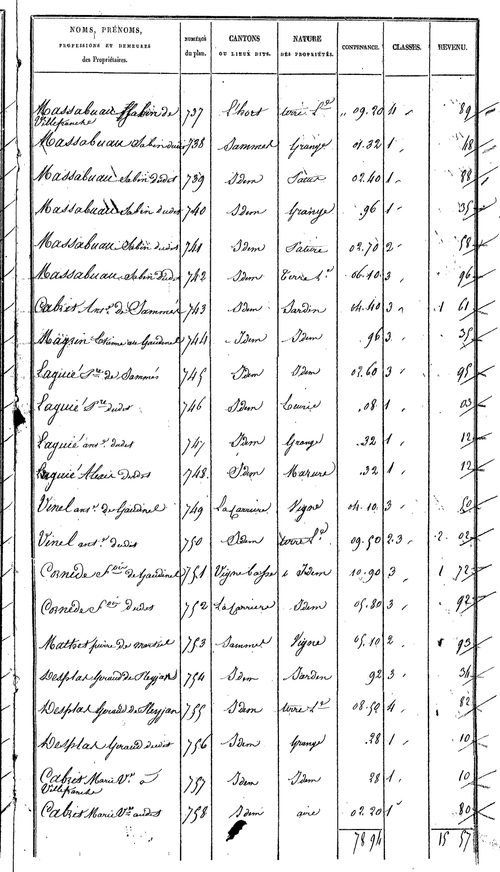 NOMS, PRÉNOMS, PROFESSIONS ET DEMEURES des Propriétaires. NUMÉROS du plan. CANTONS OU LIEUX DITS. NATURE DES PROPRIÉTÉS. CONTENANCE. CLASSES. REVENU.
Massabuau Sabin de Villefranche 737 l'hort terre Lde 09.20 4 89
Massabuau Sabin dudit 738 Sammes Grange 01.32 1 48
Massabuau Sabin dudit 739 Idem Pature 02.40 1 88
Massabuau Sabin dudit 740 Idem Grange 96 1 35
Massabuau Sabin dudit 741 Idem Pature 02.70 2 58
Massabuau Sabin dudit 742 Idem Terre Ld 06.10 3 96
Cabrit Ant. de Sammés 743 Idem Jardin 04.40 3 1 61
Magrin Etienne au Gaudinel 744 Idem Idem 96 3 35
Laguié de Sammés 745 Idem Idem 02.60 3 95
Laguié dudit 746 Idem Ecurie .08 1 03
Laguié ant. dudit 747 Idem Grange .32 1 12
Laguié Alexis dudit 748 Idem Mazure .32 1 12
Vinel ant. de Gaudinel 749 La Carriere Vigne 04.10 3 50
Vinel ant. dudit 750 Idem terre Ld 09.50 2.3 2 02
Cornède de Gaudinel 751 Vigne basse Idem 10.90 3 1 72
Cornède dudit 752 La Carriere Idem 05.80 3 92
Mathet pierre de 753 Sammes Vigne 05.10 2 93
Desplas Geraud de 754 Idem Jardin 92 3 34
Desplas Geraud de 755 Idem terre Lde 08.50 4 82
Desplas Geraud dudit 756 Idem Grange .28 1 10
Cabrit Marie Ve à Villefranche 757 Idem Idem 28 1 10
Cabrit Marie Ve audit 758 Idem aire 02.20 1 80
78 94 15 57